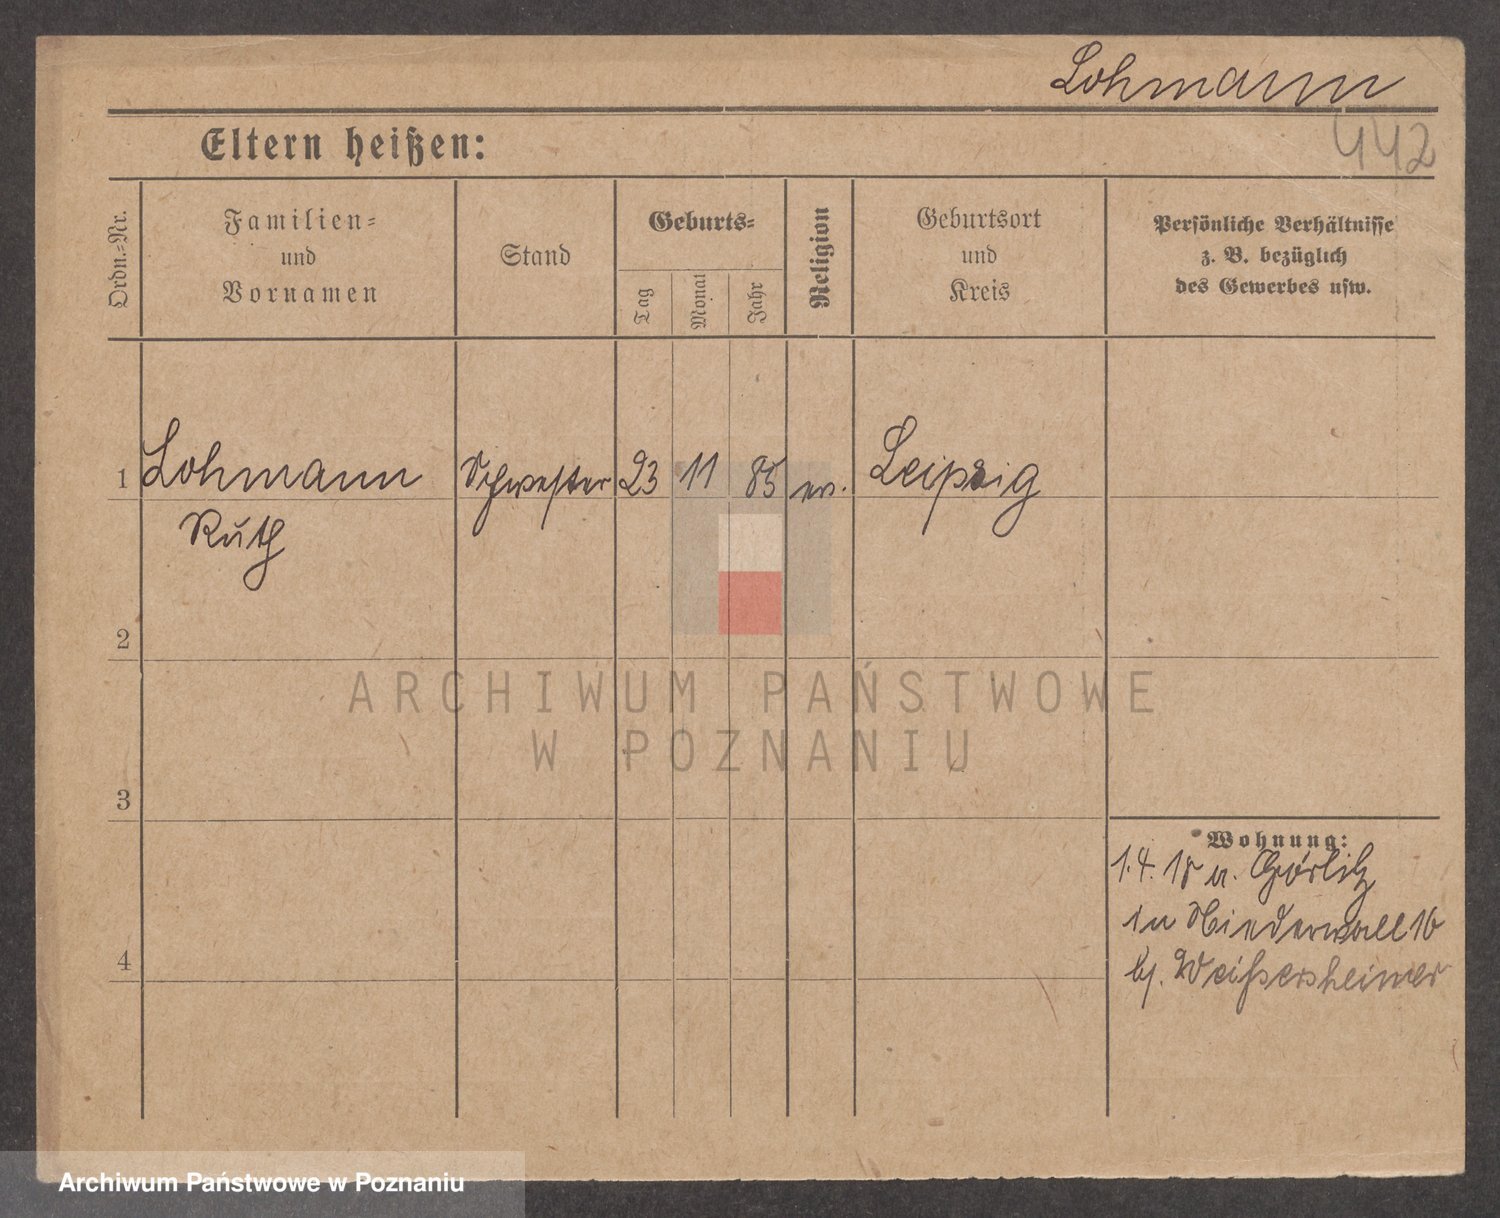 Lohmann
442
Eltern heißen:
Ordn.-Nr.
Familien-
und
Vornamen
Stand
Geburts-
Tag
Monat
Jahr
Religion
Geburtsort
und
Kreis
Persönliche Verhältnisse
z. B. bezüglich
des Gewerbes usw.
1 Lohmann Schwester 23 11 85 ev. Leipzig
Ruth
2
ARCHIWUM PAŃSTWOWE
W POZNANIU
3
Wohnung:
1.4.18 n. Görlitz
in Niederwall 16
bj. Weissersheimer
4
Archiwum Państwowe w Poznaniu